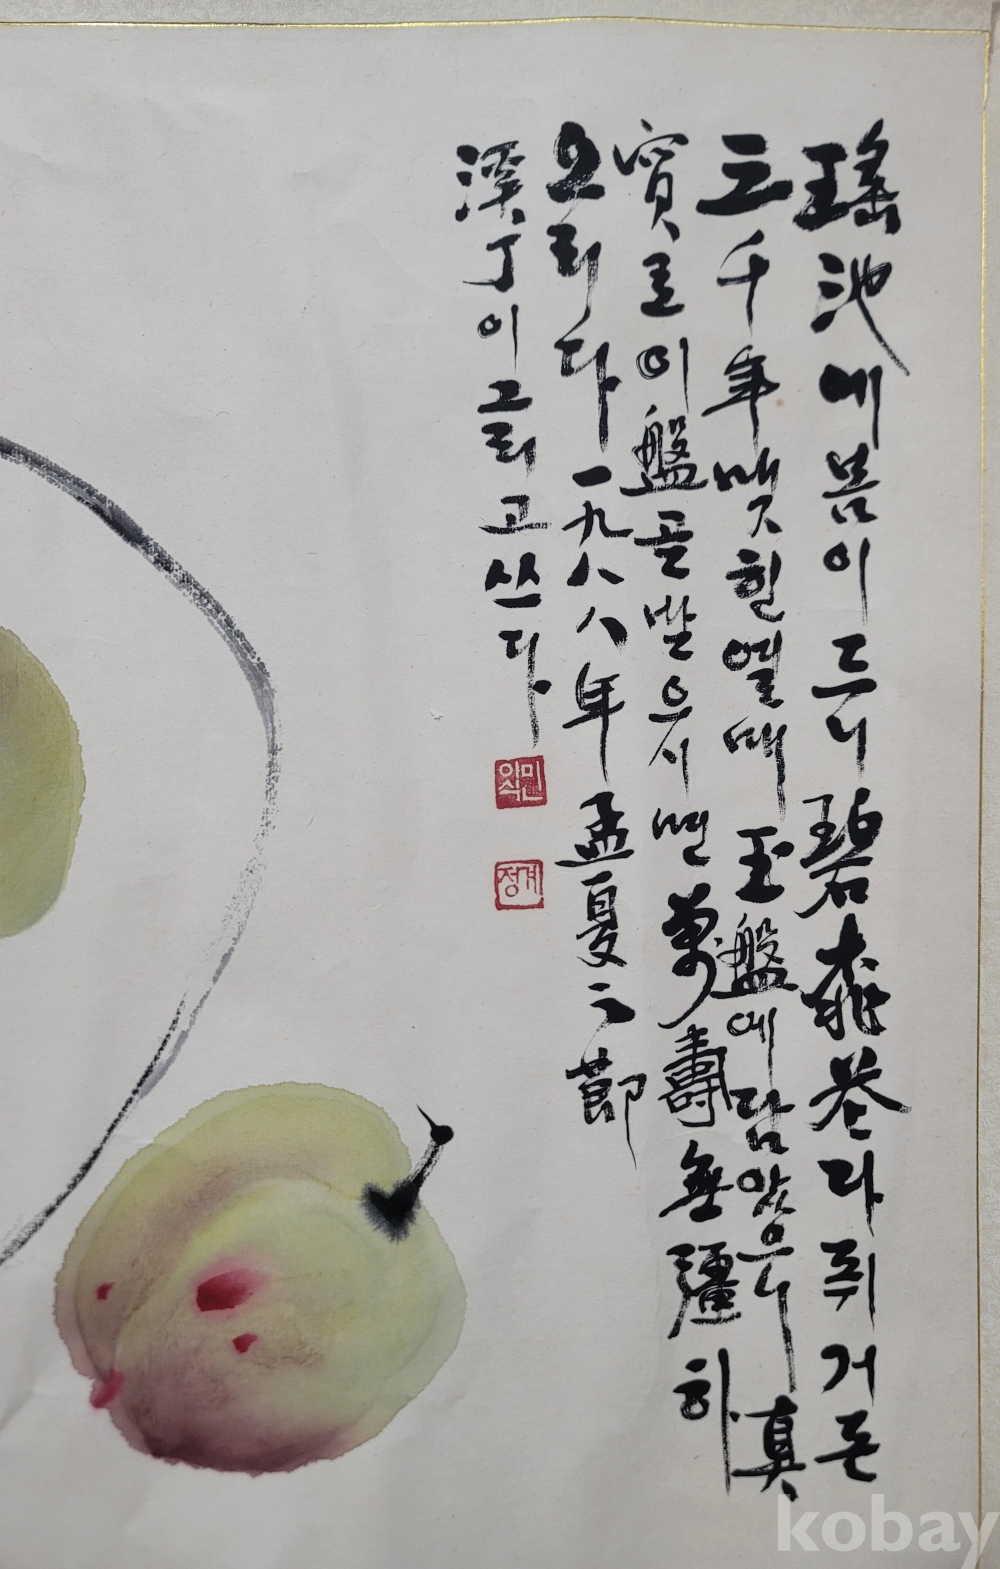 瑤池에 봄이 드니 碧桃花 다 퓌거든
三千年 맷힌 열매 玉盤에 담았으니 眞
實로 이 盤곧 받으시면 萬壽無疆하
오리다 一九八八年 孟夏之節
溪丁이 그리고 쓰다
민이식
계정
kobay